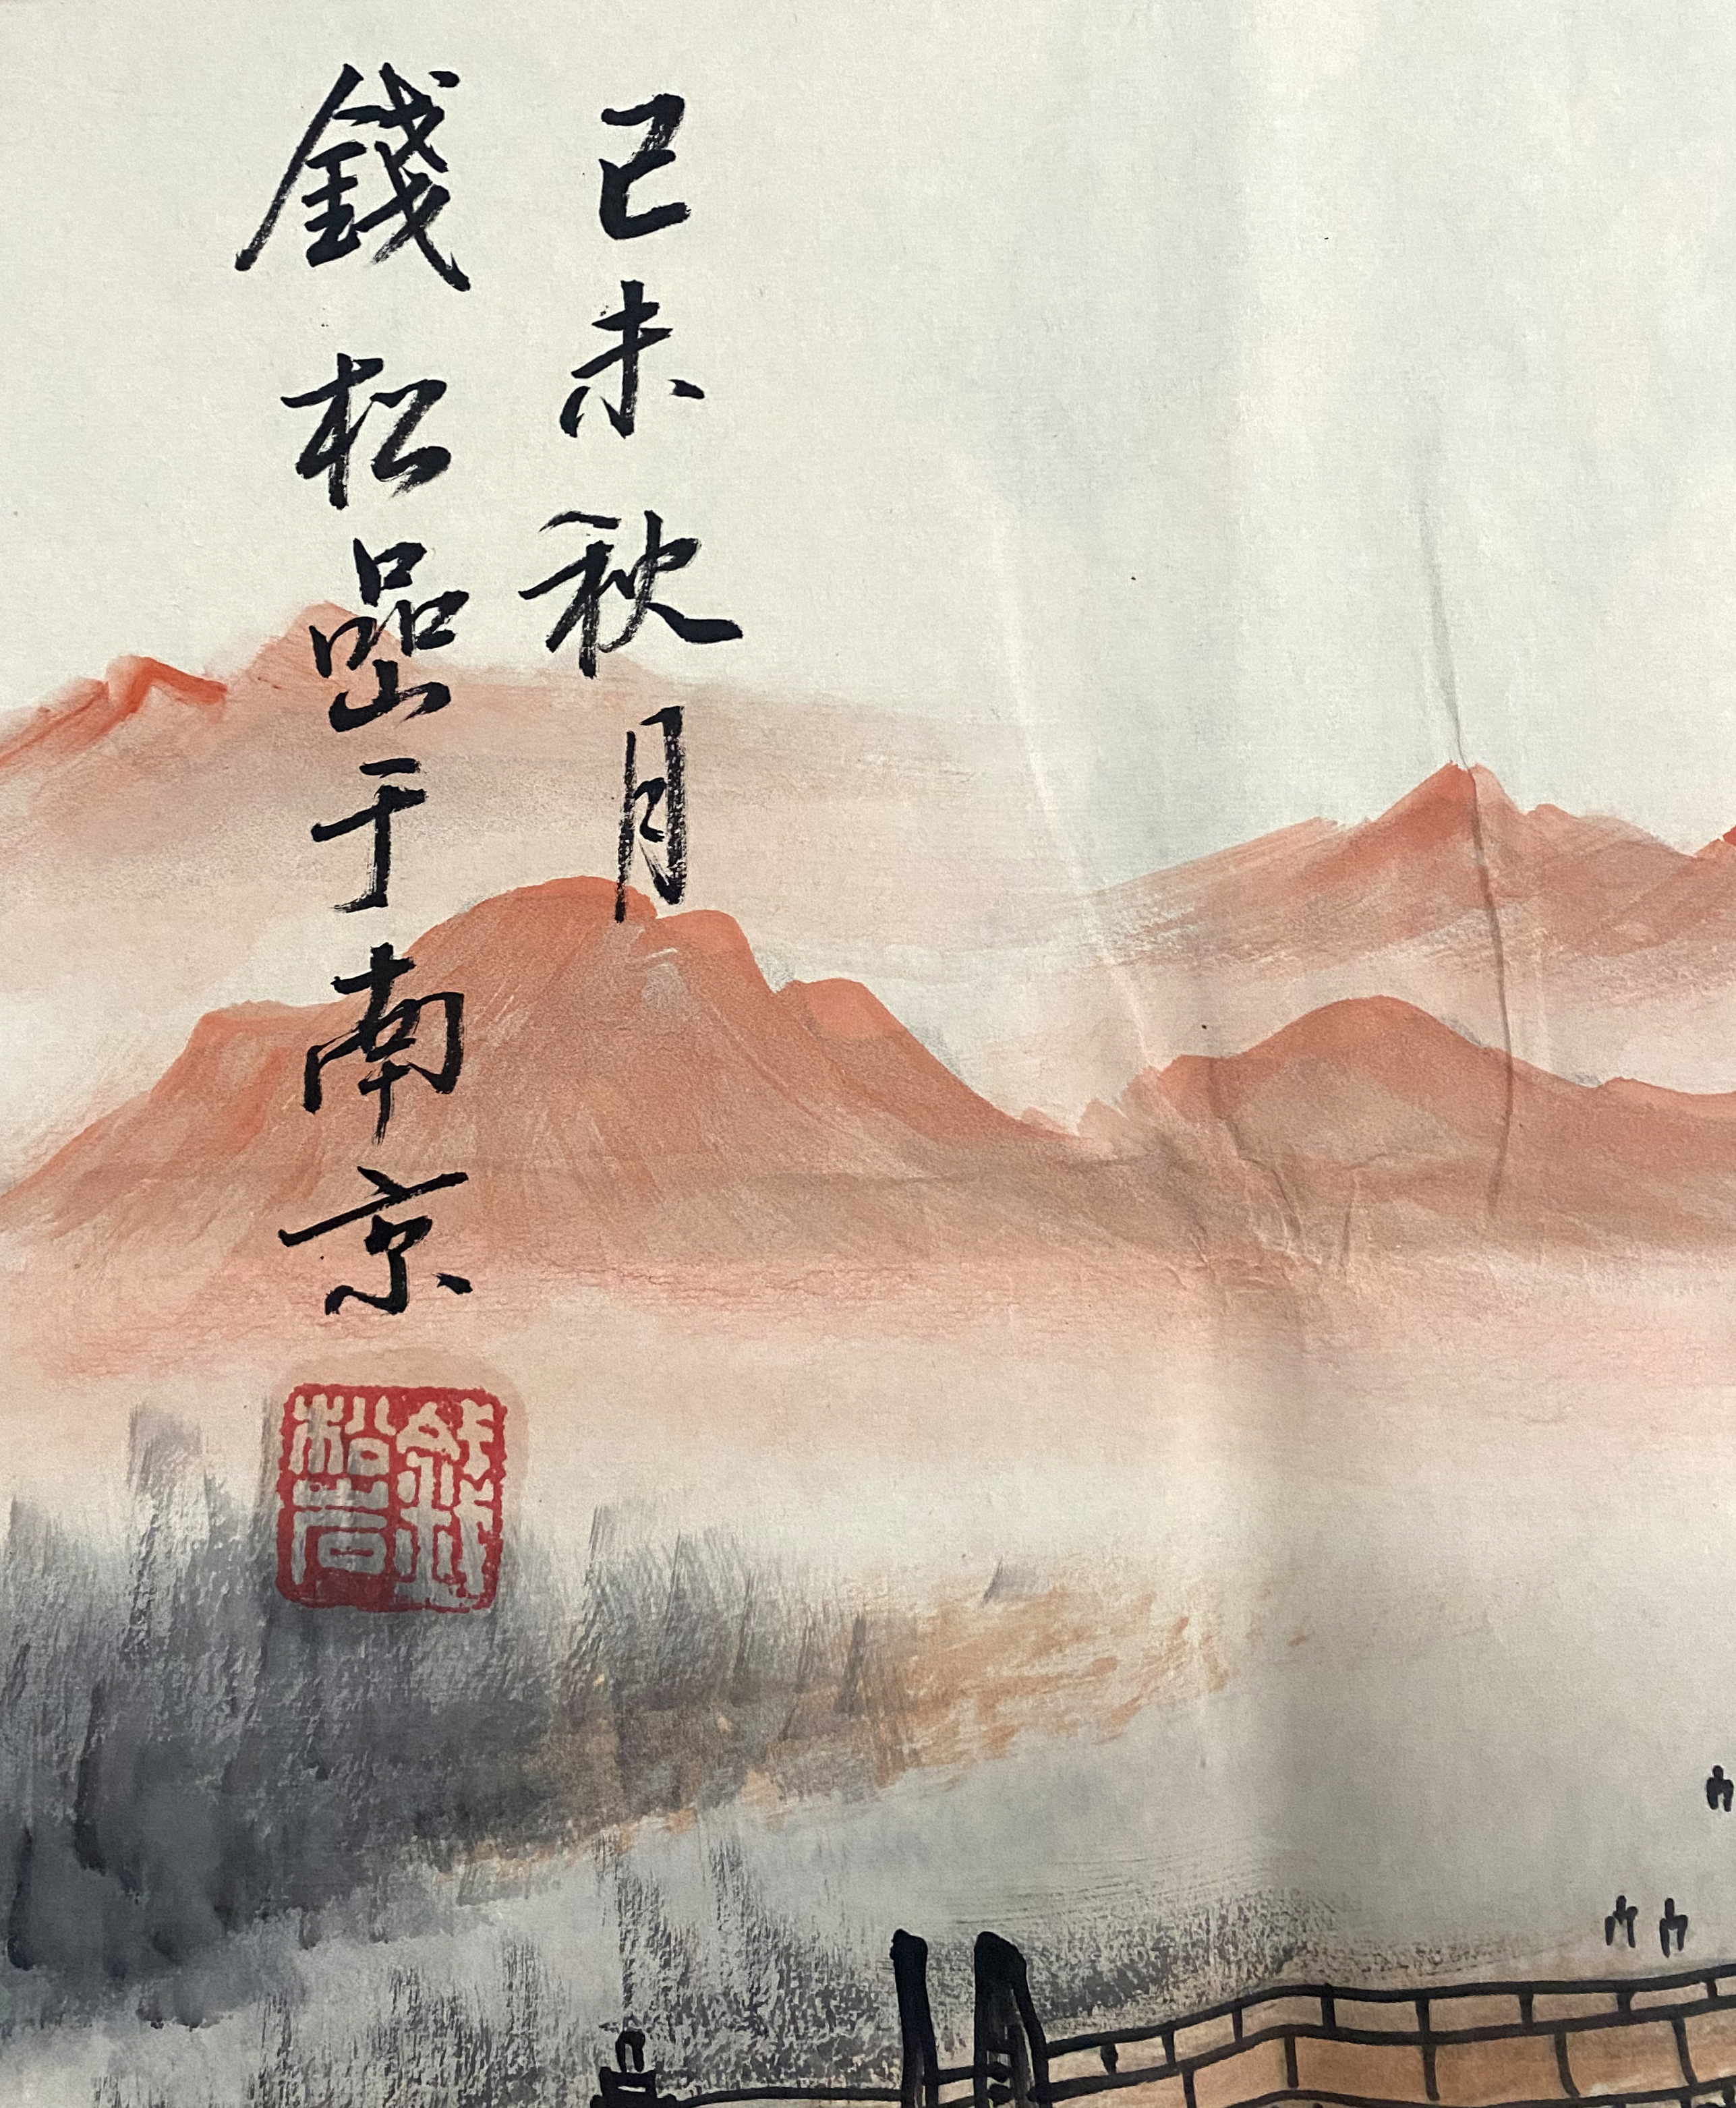 己未秋月
錢松嵒于南京
錢松嵒